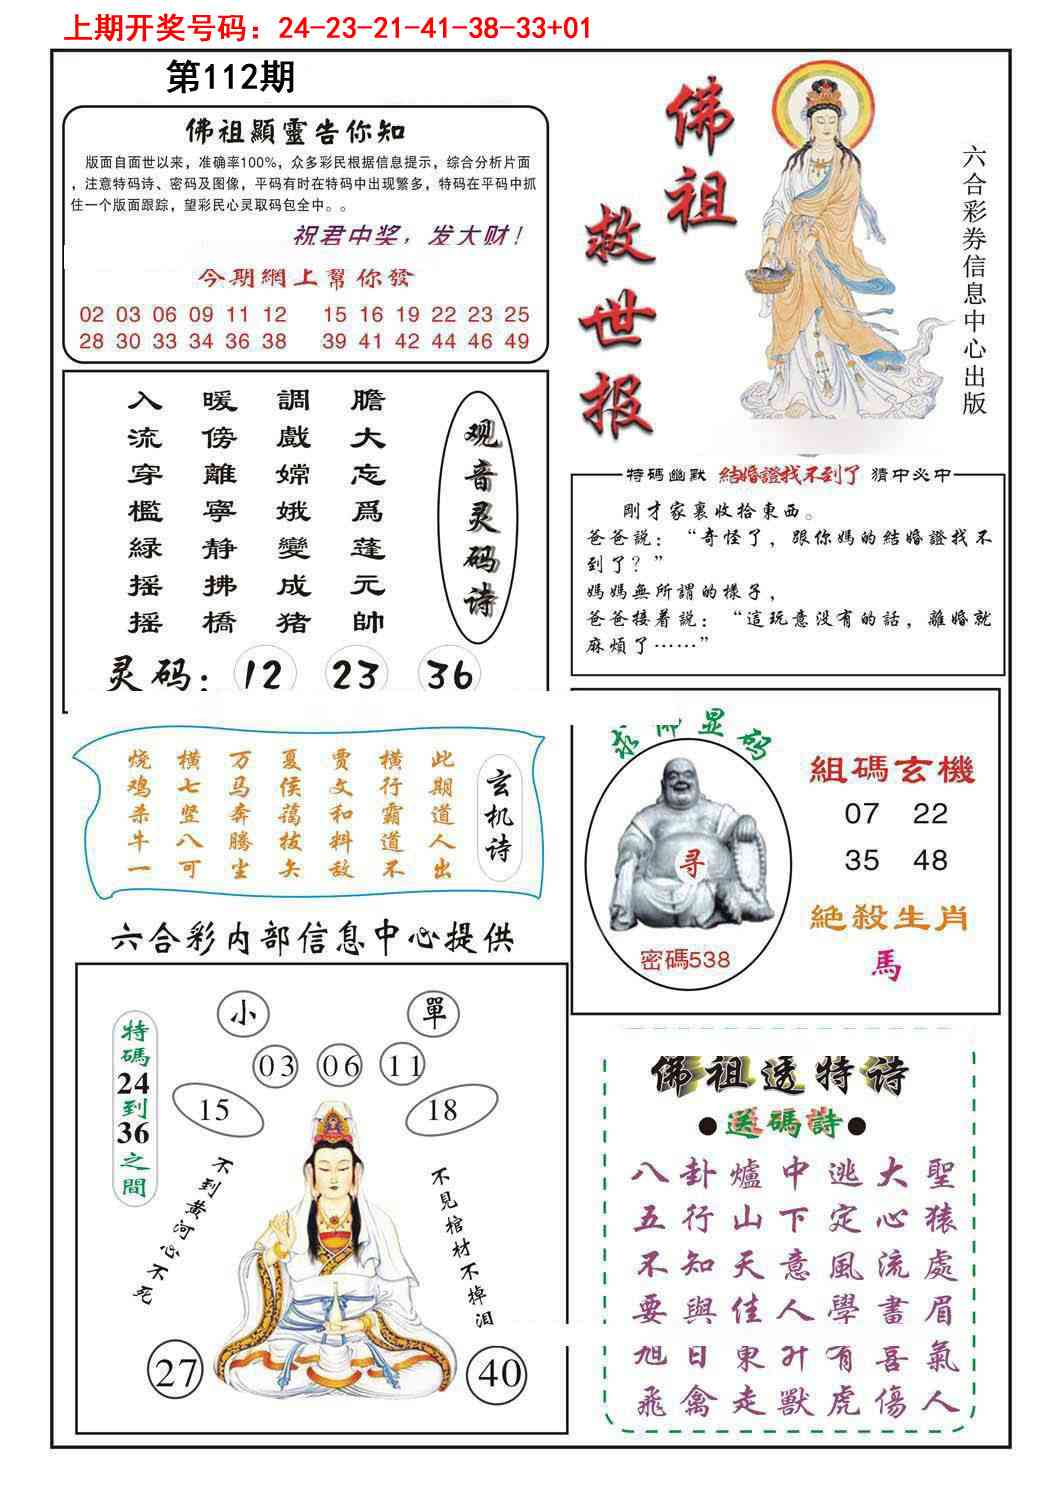 上期开奖号码：24-23-21-41-38-33+01
第112期
佛祖顯靈告你知
版面自面世以来，准确率100%，众多彩民根据信息提示，综合分析片面
，注意特码诗、密码及图像，平码有时在特码中出现繁多，特码在平码中抓
住一个版面跟踪，望彩民心灵取码包全中。。
祝君中奖，发大财！
今期網上幫你發
02 03 06 09 11 12 15 16 19 22 23 25
28 30 33 34 36 38 39 41 42 44 46 49
佛祖
救世报
六合彩券信息中心出版
膽大忘爲蓬元帥
調戲嫦娥變成猪
暖傍離寧静拂橋
入流穿檻緑摇摇
观音灵码诗
灵码：12 23 36
特碼幽默 結婚證找不到了 猜中必中
剛才家裏收拾東西。
爸爸説：“奇怪了，跟你媽的結婚證找不
到了？”
媽媽無所謂的樣子，
爸爸接着説：“這玩意没有的話，離婚就
麻煩了……”
玄机诗
此期道人出
横行霸道不
贾文和料敌
夏侯蔼拔矢
万马奔腾尘
横七竖八可
烧鸡杀牛一
求佛显码
寻
密碼538
組碼玄機
07 22
35 48
絶殺生肖
馬
六合彩内部信息中心提供
小 單
03 06 11
15 18
特碼24到36之間
不到黄河心不死
不見棺材不掉泪
27 40
佛祖透特诗
●送碼詩●
八卦爐中逃大聖
五行山下定心猿
不知天意風流處
要與佳人學畫眉
旭日東升有喜氣
飛禽走獸虎傷人